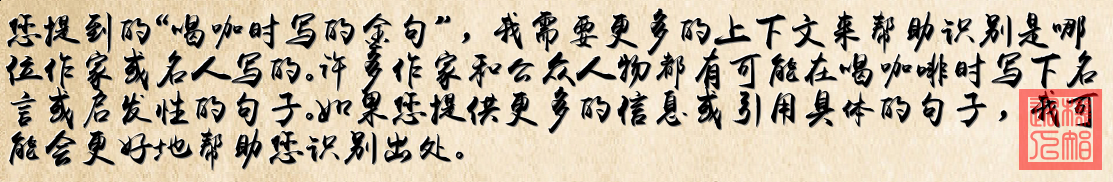 您提到的“喝咖时写的金句”，我需要更多的上下文来帮助识别是哪
位作家或名人写的。许多作家和公众人物都有可能在喝咖啡时写下名
言或启发性的句子。如果您提供更多的信息或引用具体的句子，我可
能会更好地帮助您识别出处。